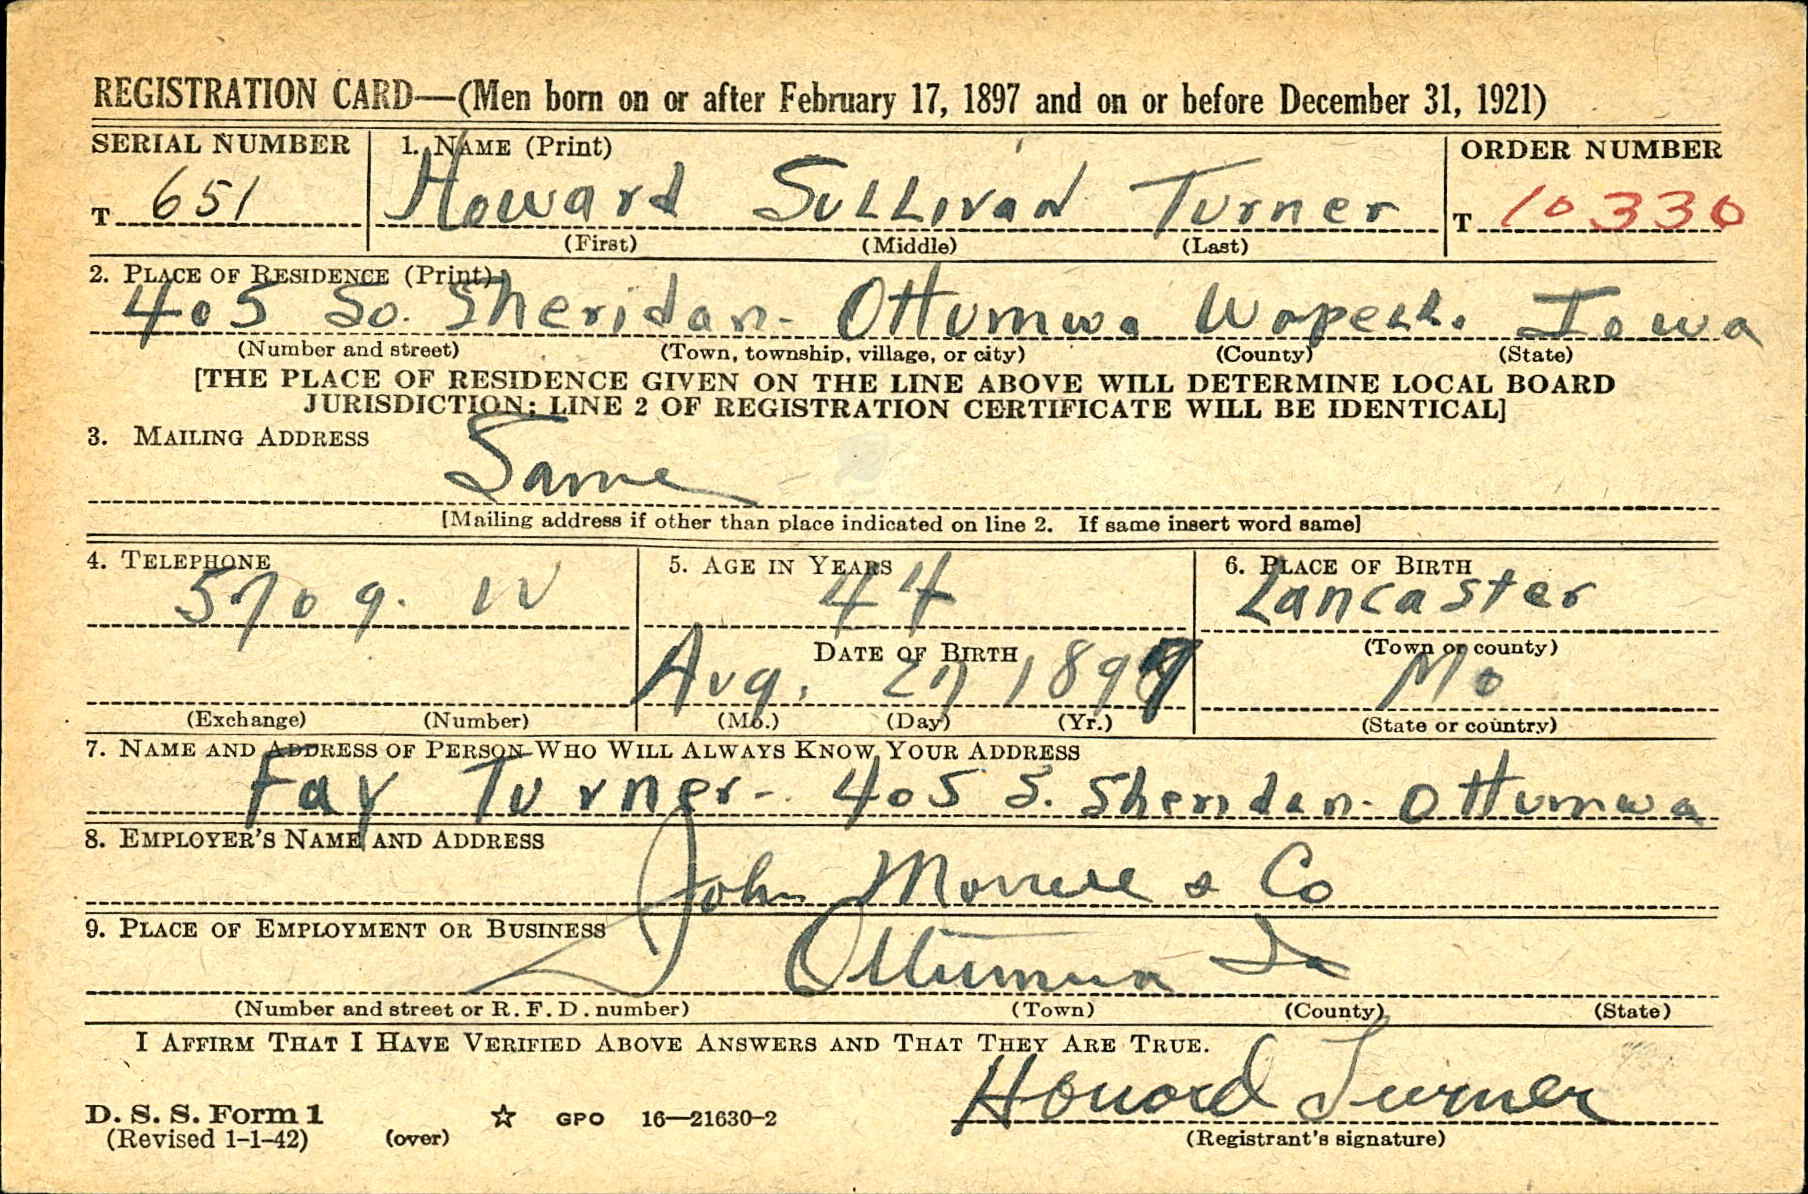 REGISTRATION CARD—(Men born on or after February 17, 1897 and on or before December 31, 1921)
SERIAL NUMBER 1. NAME (Print) ORDER NUMBER
T 651 Howard Sullivan Turner T 10330
(First) (Middle) (Last)
2. PLACE OF RESIDENCE (Print)
405 So. Sheridan- Ottumwa Wapell. Iowa
(Number and street) (Town, township, village, or city) (County) (State)
[THE PLACE OF RESIDENCE GIVEN ON THE LINE ABOVE WILL DETERMINE LOCAL BOARD
JURISDICTION; LINE 2 OF REGISTRATION CERTIFICATE WILL BE IDENTICAL]
3. MAILING ADDRESS
Same
[Mailing address if other than place indicated on line 2. If same insert word same]
4. TELEPHONE 5. AGE IN YEARS 6. PLACE OF BIRTH
5709. W 44 Lancaster
DATE OF BIRTH (Town or county)
Aug. 27 1897 Mo
(Exchange) (Number) (Mo.) (Day) (Yr.) (State or country)
7. NAME AND ADDRESS OF PERSON WHO WILL ALWAYS KNOW YOUR ADDRESS
Fay Turner- 405 S. Sheridan- Ottumwa
8. EMPLOYER'S NAME AND ADDRESS
John Morrell & Co
9. PLACE OF EMPLOYMENT OR BUSINESS
Ottumwa Ia
(Number and street or R. F. D. number) (Town) (County) (State)
I AFFIRM THAT I HAVE VERIFIED ABOVE ANSWERS AND THAT THEY ARE TRUE.
Howard Turner
D. S. S. Form 1 ☆ GPO 16—21630-2
(Revised 1-1-42) (over) (Registrant's signature)